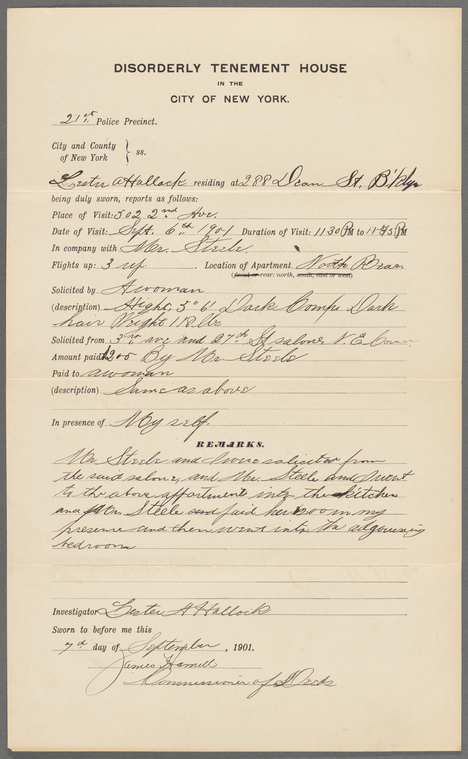 DISORDERLY TENEMENT HOUSE
IN THE
CITY OF NEW YORK.
21st Police Precinct.
City and County
of New York } ss.
Lester A Hallock residing at 288 Dean St. B'klyn
being duly sworn, reports as follows:
Place of Visit: 302 2nd Ave.
Date of Visit: Sept. 6th 1901 Duration of Visit: 11 30 PM to 11 45 PM
In company with Mr. Steele
Flights up: 3 up. Location of Apartment North Rear
(front or rear; north, south, east or west)
Solicited by A woman
(description) Hight, 5" 6' Dark Comp. Dark
hair Weight 118 lbs
Solicited from 3rd ave and 27th St saloon N. E. Cor.
Amount paid $2.00 By Mr Steele
Paid to a woman
(description) Same as above
In presence of My self.
REMARKS.
Mr. Steele and I were solicited from
the said saloon, and Mr. Steele and I went
to the above appartment into the kitchen
and Mr. Steele and paid her in my
presence and then went into the adjouning
bedroom
Investigator Lester A Hallock
Sworn to before me this
7th day of September, 1901.
James Hamill
Commissioner of Deeds